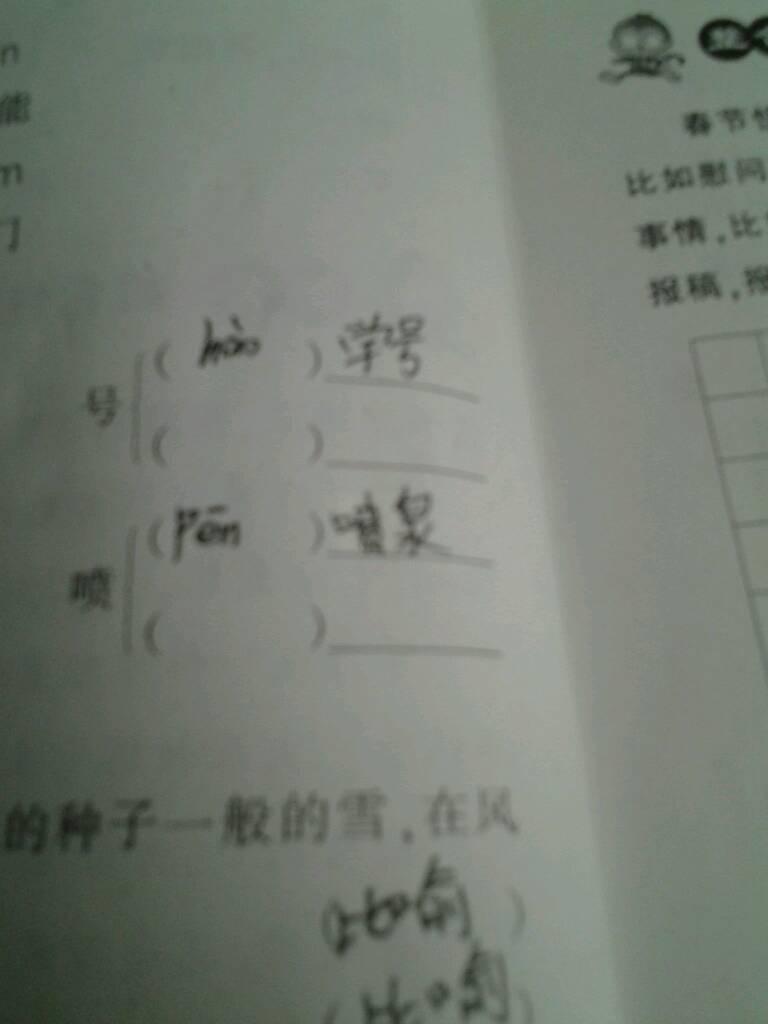 n
能
m
门
号
( hào ) 学号
( )
喷
( pēn ) 喷泉
( )
的种子一般的雪,在风
(比喻)
(比喻)
春节
比如慰问
事情,比
报稿,报